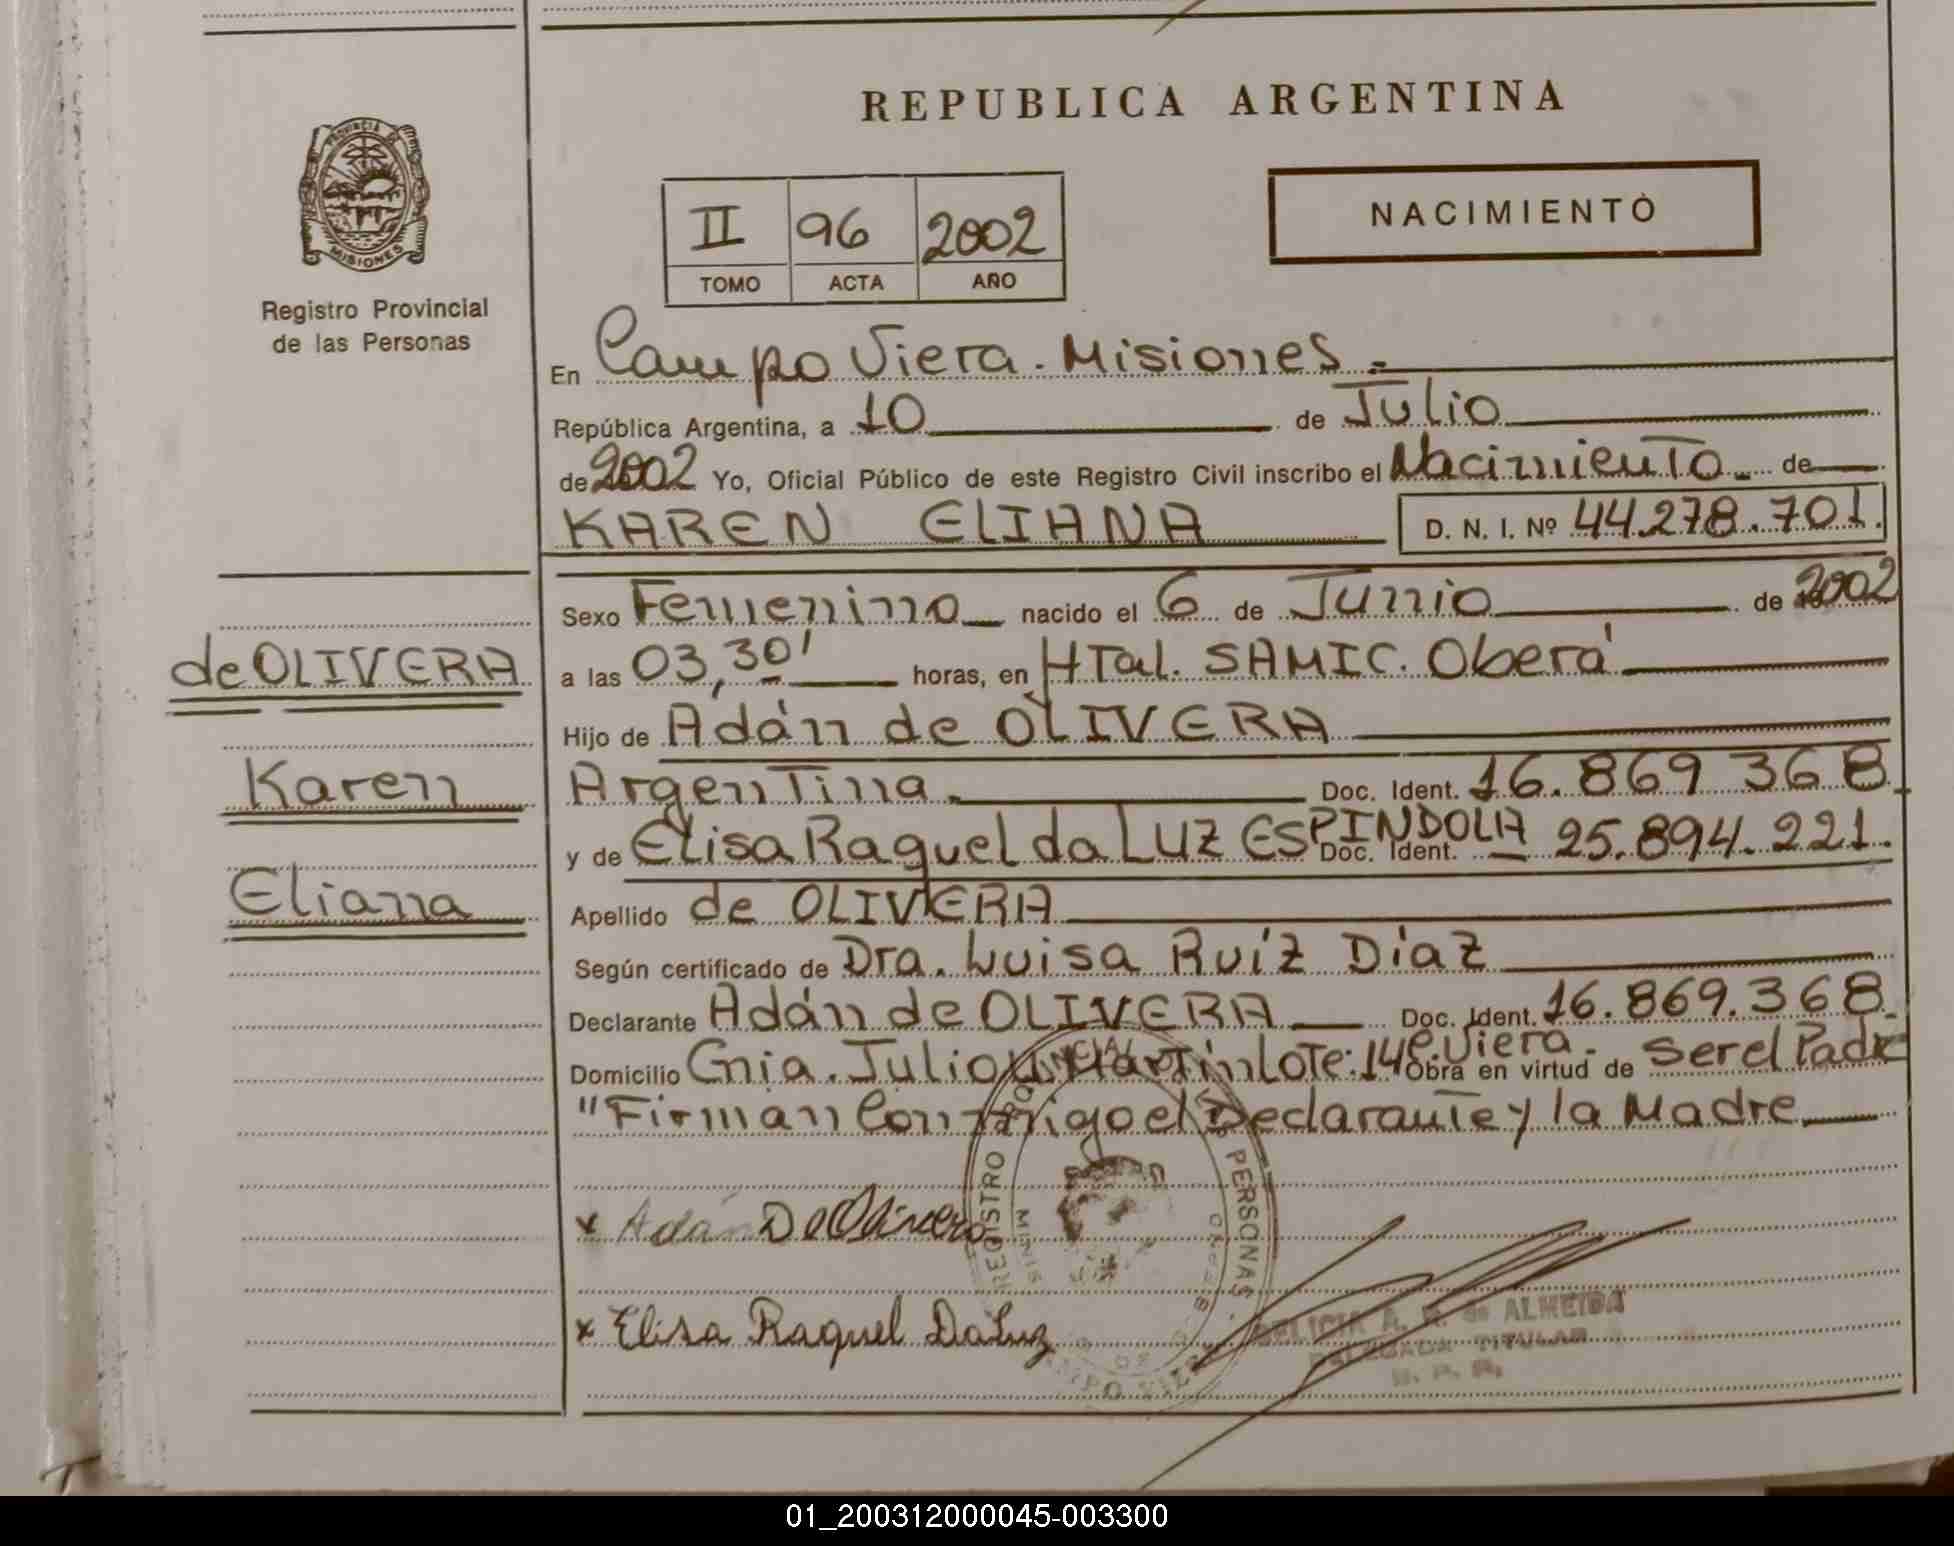 REPUBLICA ARGENTINA
PROVINCIA DE
MISIONES
Registro Provincial
de las Personas
II 96 2002
TOMO ACTA AÑO
NACIMIENTO
En Campo Viera. Misiones.-
República Argentina, a 10 de Julio
de 2002 Yo, Oficial Público de este Registro Civil inscribo el Nacimiento de
KAREN ELIANA D. N. I. Nº 44.278.701.
Sexo Femenino nacido el 6 de Junio de 2002
de OLIVERA
a las 03,30' horas, en HTal. SAMIC. Oberá
Hijo de Adán de OLIVERA
Karen
Argentina. Doc. Ident. 16.869.368
y de Elisa Raquel da LUZ ESPINDOLA Doc. Ident. 25.894.221.
Eliana
Apellido de OLIVERA
Según certificado de Dra. Luisa Ruíz Díaz
Declarante Adán de OLIVERA Doc. Ident. 16.869.368
Domicilio Cnia. Julio U. Martín lote: 14 C. Viera. Obra en virtud de ser el Padre
"Firman Conmigo el Declarante y la Madre
x Adán De Olivera
x Elisa Raquel Da Luz
REGISTRO PROVINCIAL DE LAS PERSONAS
CAMPO VIERA
DELICIA A. R. de ALMEIDA
DELEGADA TITULAR
R. P. P.
01_200312000045-003300